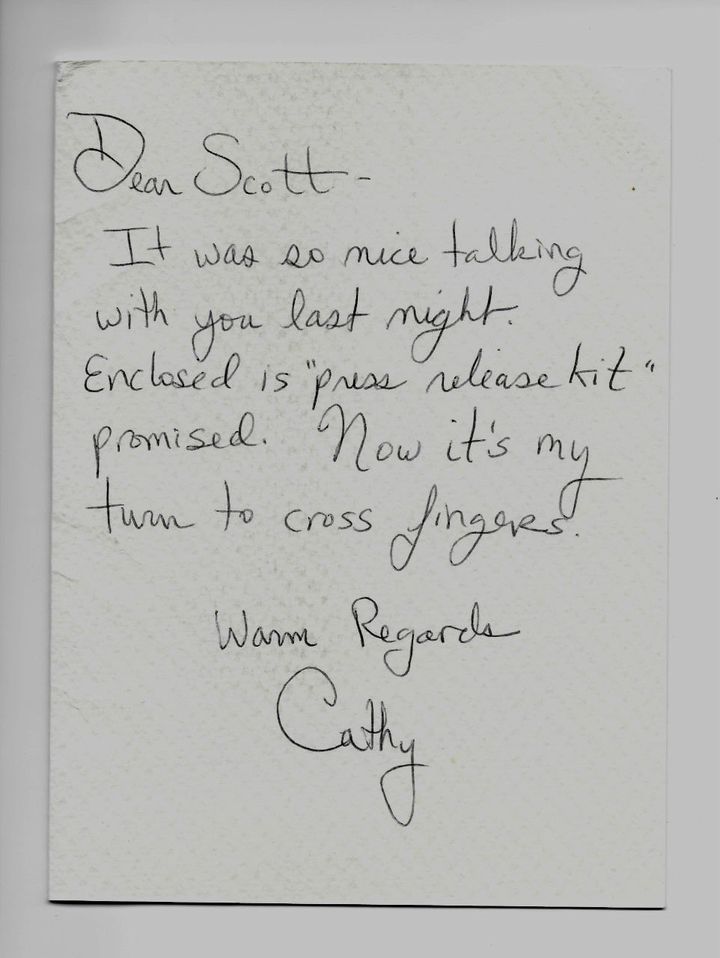 Dear Scott -
It was so nice talking
with you last night.
Enclosed is "press release kit"
promised. Now it's my
turn to cross fingers.
Warm Regards
Cathy